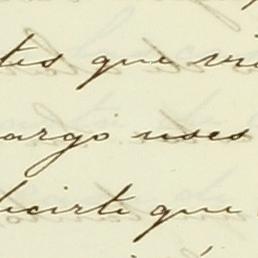 tes que vi
argo uses
ecirte que